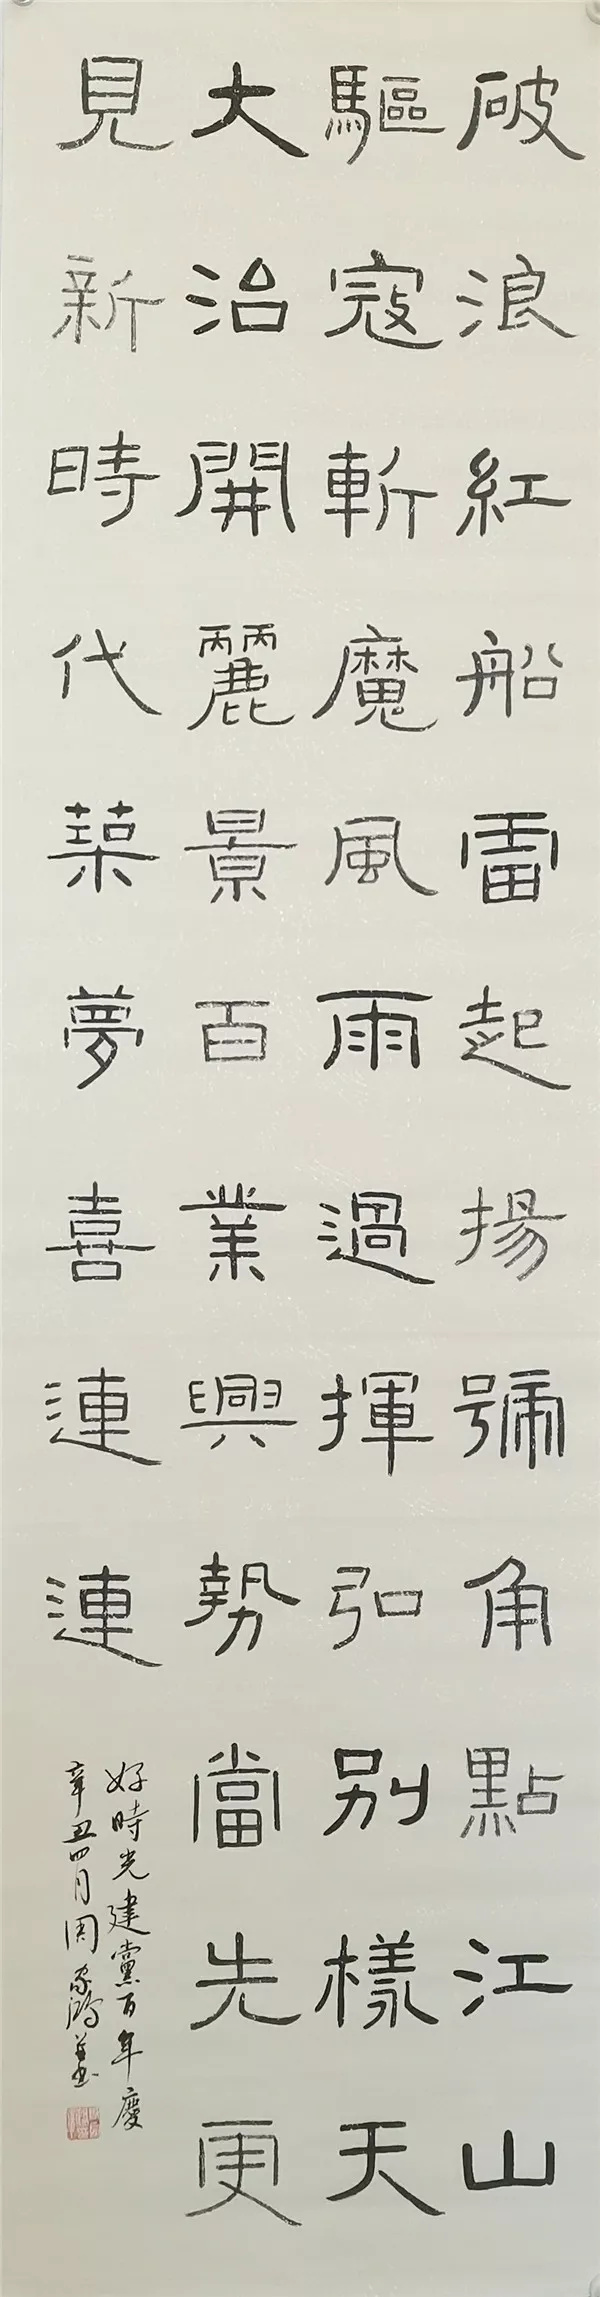 破浪紅船雷起揚號角點江山
驅寇斬魔風雨過揮弘別樣天
大治開麗景百業興勢當先更
見新時代築夢喜連連
好時光建黨百年慶
辛丑四月周家鴻並書